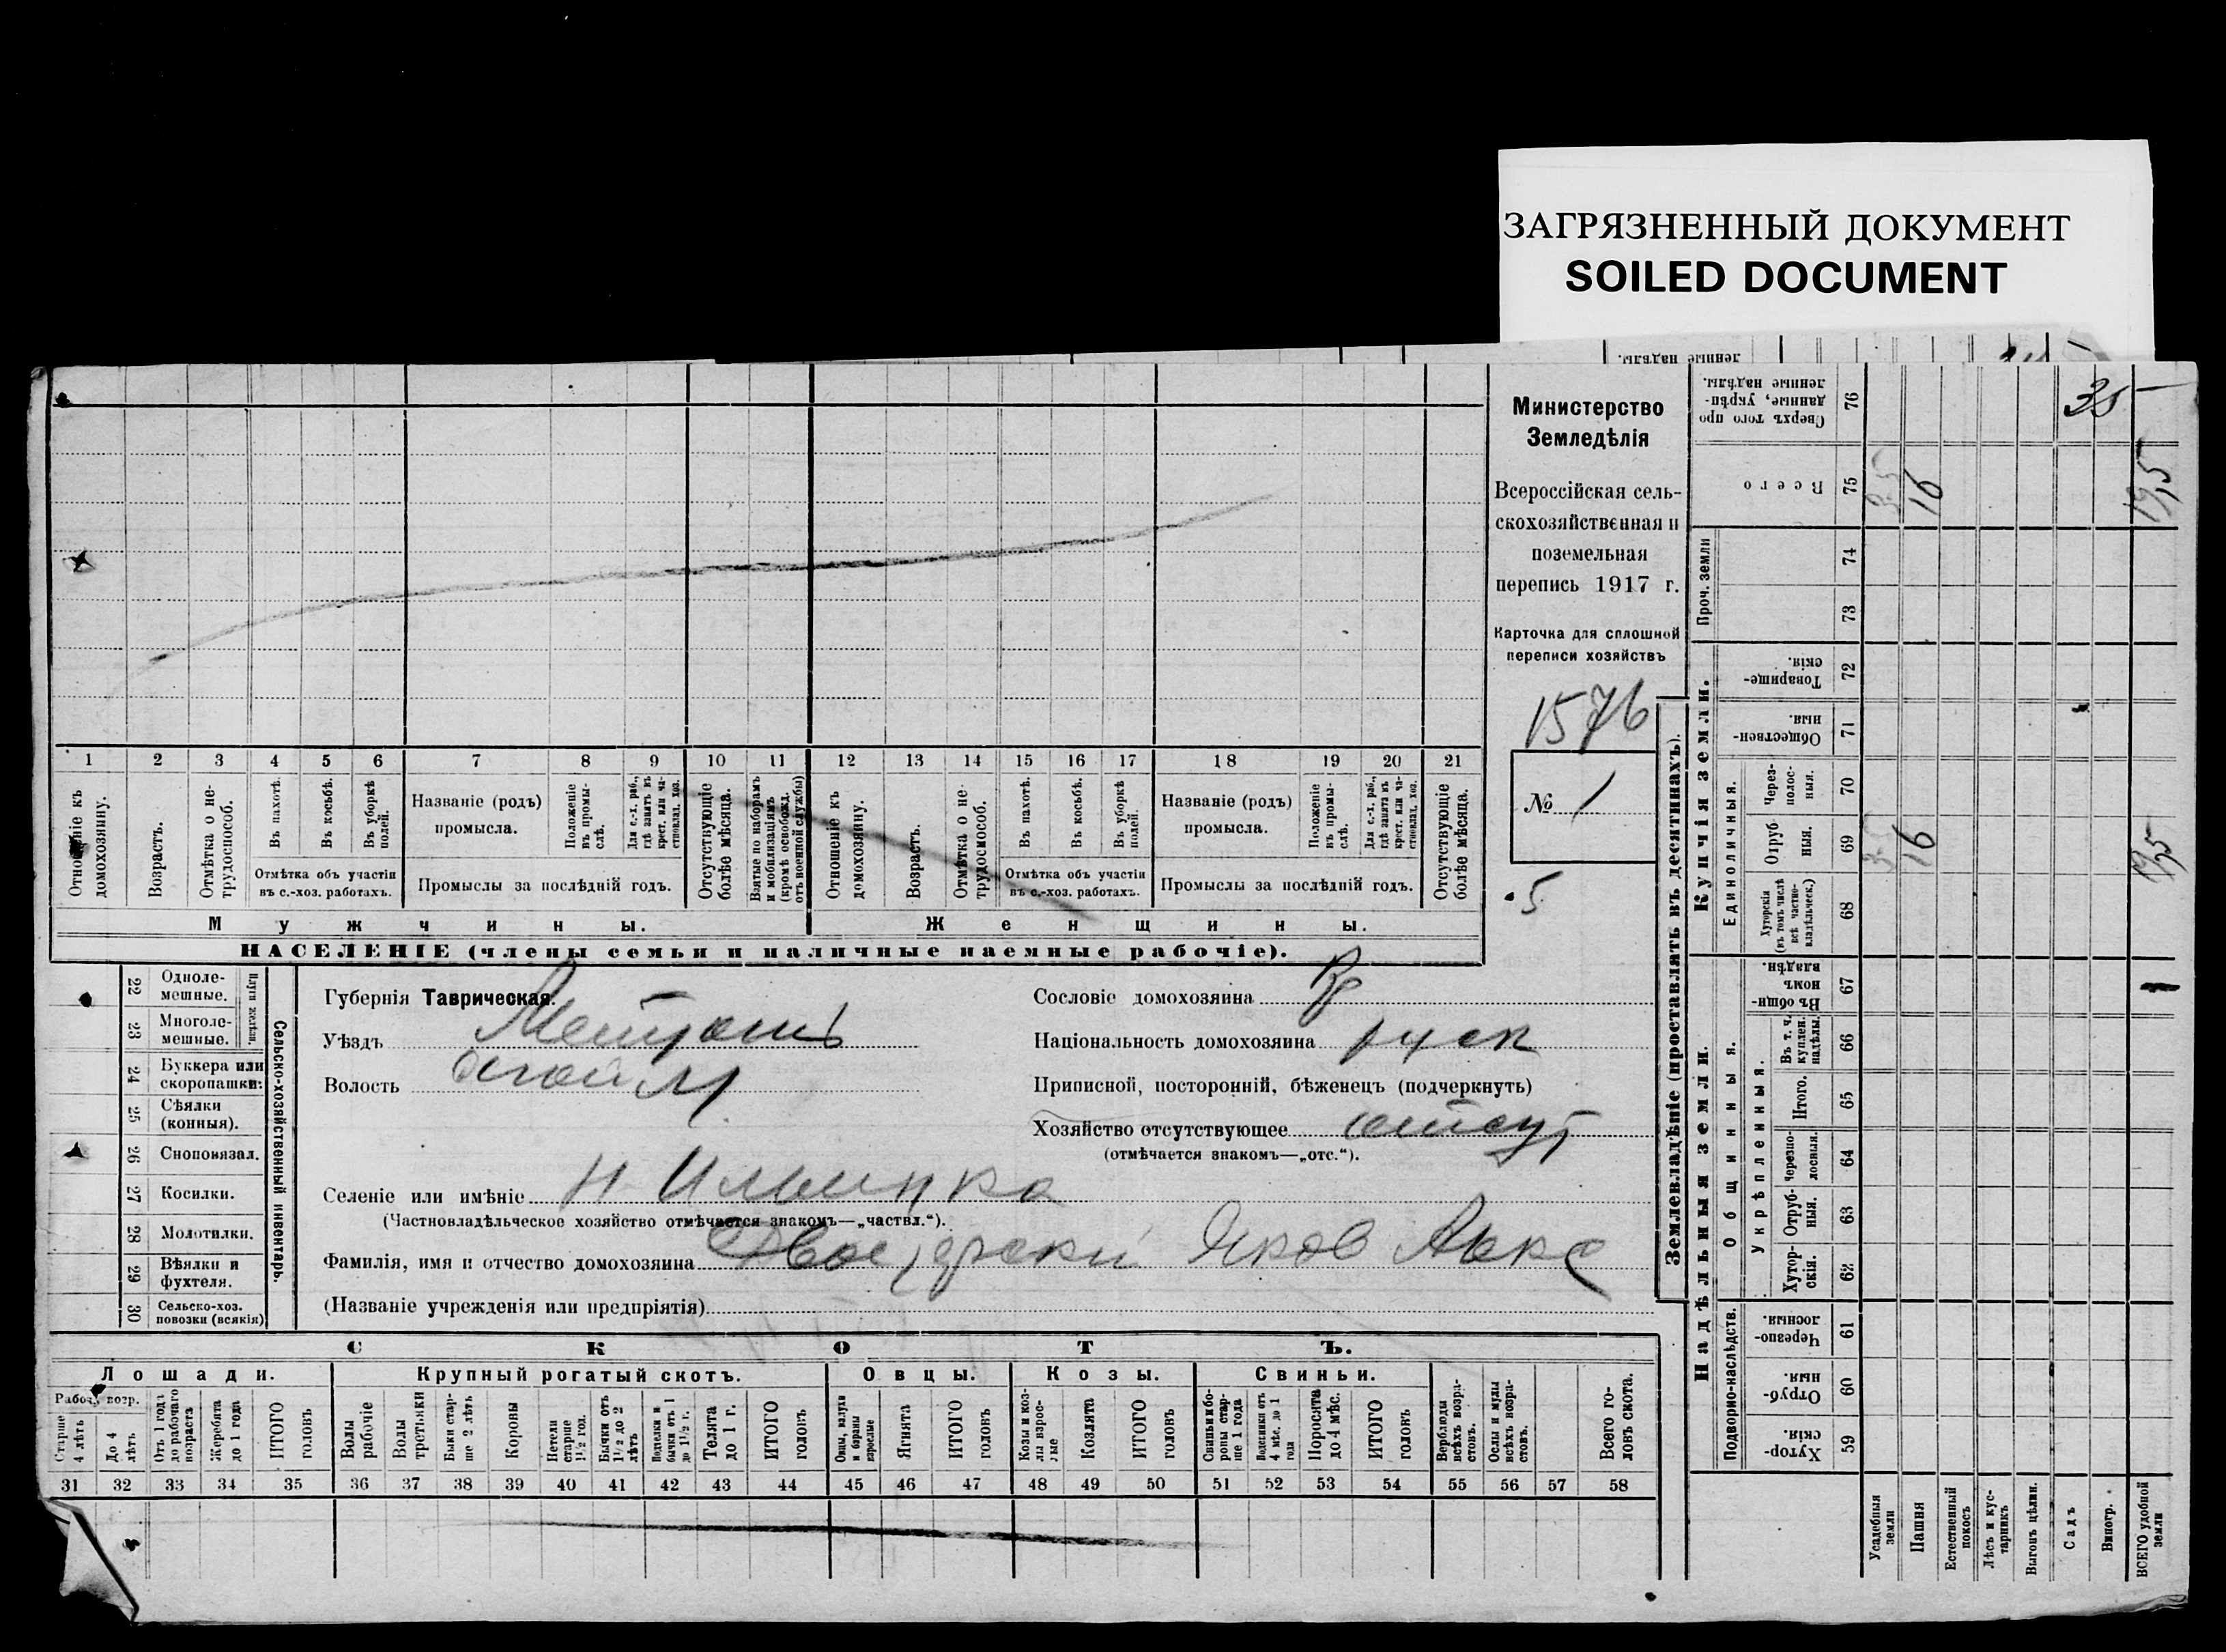 ЗАГРЯЗНЕННЫЙ ДОКУМЕНТ
SOILED DOCUMENT
Министерство
Земледѣлія
Всероссійская сель-
скохозяйственная и
поземельная
перепись 1917 г.
Карточка для сплошной
переписи хозяйствъ
1576
№ 1
5
1 2 3 4 5 6 7 8 9 10 11 12 13 14 15 16 17 18 19 20 21
Отношеніе къ домохозяину.
Возрастъ.
Отмѣтка о не-трудоспособ.
Въ пахотѣ.
Въ косьбѣ.
Въ уборкѣ полей.
Отмѣтка объ участіи
въ с.-хоз. работахъ.
Названіе (родъ)
промысла.
Положеніе въ промы-слѣ.
Для с.-х. раб., гдѣ занятъ въ крест. или ча-стновлад. хоз.
Промыслы за послѣдній годъ.
Отсутствующіе болѣе мѣсяца.
Взятые по наборамъ и мобилизаціямъ (кромѣ освобожд. отъ военной службы)
Отношеніе къ домохозяину.
Возрастъ.
Отмѣтка о не-трудоспособ.
Въ пахотѣ.
Въ косьбѣ.
Въ уборкѣ полей.
Отмѣтка объ участіи
въ с.-хоз. работахъ.
Названіе (родъ)
промысла.
Положеніе въ промы-слѣ.
Для с.-х. раб., гдѣ занята въ крест. или ча-стновлад. хоз.
Промыслы за послѣдній годъ.
Отсутствующіе болѣе мѣсяца.
Мужчины. Женщины.
НАСЕЛЕНІЕ (члены семьи и наличные наемные рабочіе).
22 Одноле-мешные.
23 Многоле-мешные.
Плуги желѣзн.
24 Буккера или скоропашки:
25 Сѣялки (конныя).
26 Сноповязал.
27 Косилки.
28 Молотилки.
29 Вѣялки и фухтеля.
30 Сельско-хоз. повозки (всякія)
Сельско-хозяйственный инвентарь.
Губернія Таврическая.
Уѣздъ
Волость
Селеніе или имѣніе
(Частновладѣльческое хозяйство отмѣчается знакомъ—„частвл.“).
Фамилія, имя и отчество домохозяина Яков
(Названіе учрежденія или предпріятія)
Сословіе домохозяина
Національность домохозяина
Приписной, посторонній, бѣженецъ (подчеркнуть)
Хозяйство отсутствующее отсут
(отмѣчается знакомъ—„отс.“).
СКОТЪ.
Лошади. Крупный рогатый скотъ. Овцы. Козы. Свиньи.
Рабоч. возр.
Старше 4 лѣтъ
До 4 лѣтъ
Отъ 1 года до рабочаго возраста
Жеребята до 1 года
ИТОГО головъ
Волы рабочіе
Волы третьяки
Быки стар-ше 2 лѣтъ
Коровы
Нетели старше 1½ год.
Бычки отъ 1½ до 2 лѣтъ
Подтелки и бычки отъ 1 до 1½ г.
Телята до 1 г.
ИТОГО головъ
Овцы, валухи и бараны взрослые
Ягнята
ИТОГО головъ
Козы и коз-лы взрос-лые
Козлята
ИТОГО головъ
Свиньи и бо-ровы стар-ше 1 года
Подсвинки отъ 4 мѣс. до 1 года
Поросята до 4 мѣс.
ИТОГО головъ
Верблюды всѣхъ возра-стовъ.
Ослы и мулы всѣхъ возра-стовъ.
Всего го-ловъ скота.
31 32 33 34 35 36 37 38 39 40 41 42 43 44 45 46 47 48 49 50 51 52 53 54 55 56 57 58
Землевладѣніе (проставлять въ десятинахъ).
Купчія земли.
Надѣльныя земли.
Сверхъ того про-данные, укрѣп-ленные надѣлы. 76 35
Всего 75 16 19,5
Проч. земли 74 73
Товарище-скія. 72
Обществен-ныя. 71
Единоличныя.
Через-полос-ныя. 70
Отруб-ныя. 69 16 19,5
Хуторскія (въ томъ числѣ всѣ частно-владѣльческ.) 68
Общинныя.
Въ общин-номъ владѣн. 67
Укрѣпленныя.
Въ т. ч. куплен. надѣлы. 66
Итого. 65
Черезпо-лосныя. 64
Отруб-ныя. 63
Хутор-скія. 62
Подворно-наслѣдств.
Черезпо-лосныя. 61
Отруб-ныя. 60
Хутор-скія. 59
Усадебныя земли
Пашня
Естественный покосъ
Лѣсъ и кус-тарникъ
Выгонъ цѣлин.
Садъ
Виногр.
ВСЕГО удобной земли